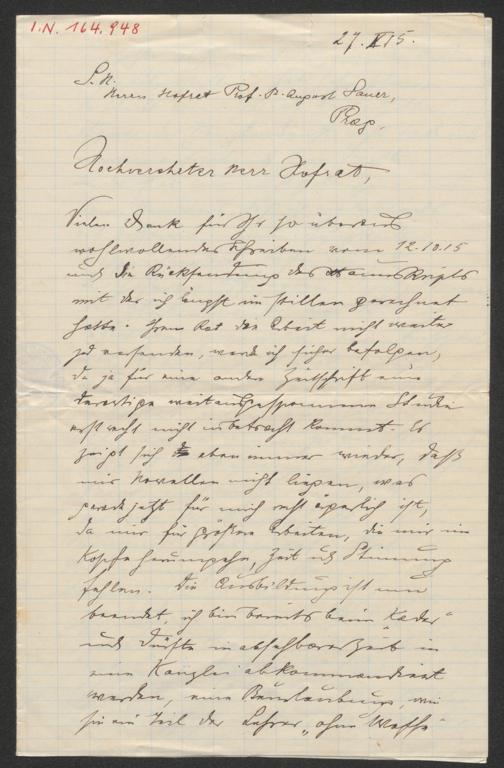 I.N. 164.948
27. X 15.
S. H.
Herrn Hofrat Prof. D. August Sauer,
Prag,
Hochverehrter Herr Hofrat,
Vielen Dank für Ihr so überaus
wohlwollendes Schreiben vom 12.10.15
und die Rücksendung des Manuskripts
mit der ich längst im stillen gerechnet
hatte. Ihrem Rat die Arbeit nicht weiter
zu versenden, werde ich sicher befolgen,
da ja für eine andere Zeitschrift eine
derartige weitausgesponnene Studie
erst recht nicht in betracht kommt. Es
zeigt sich eben immer wieder, daß
mir Novellen nicht liegen, was
gerade jetzt für mich recht ärgerlich ist,
da mir für größere Arbeiten, die mir im
Kopfe herumgehn, Zeit und Stimmung
fehlen. Die Ausbildung ist nun
beendet, ich bin bereits beim „Kader“
und dürfte in absehbarer Zeit in
eine Kanzlei abkommandiert
werden, eine Beurlaubung, wie
sie ein Teil der Lehrer „ohne Waffe“